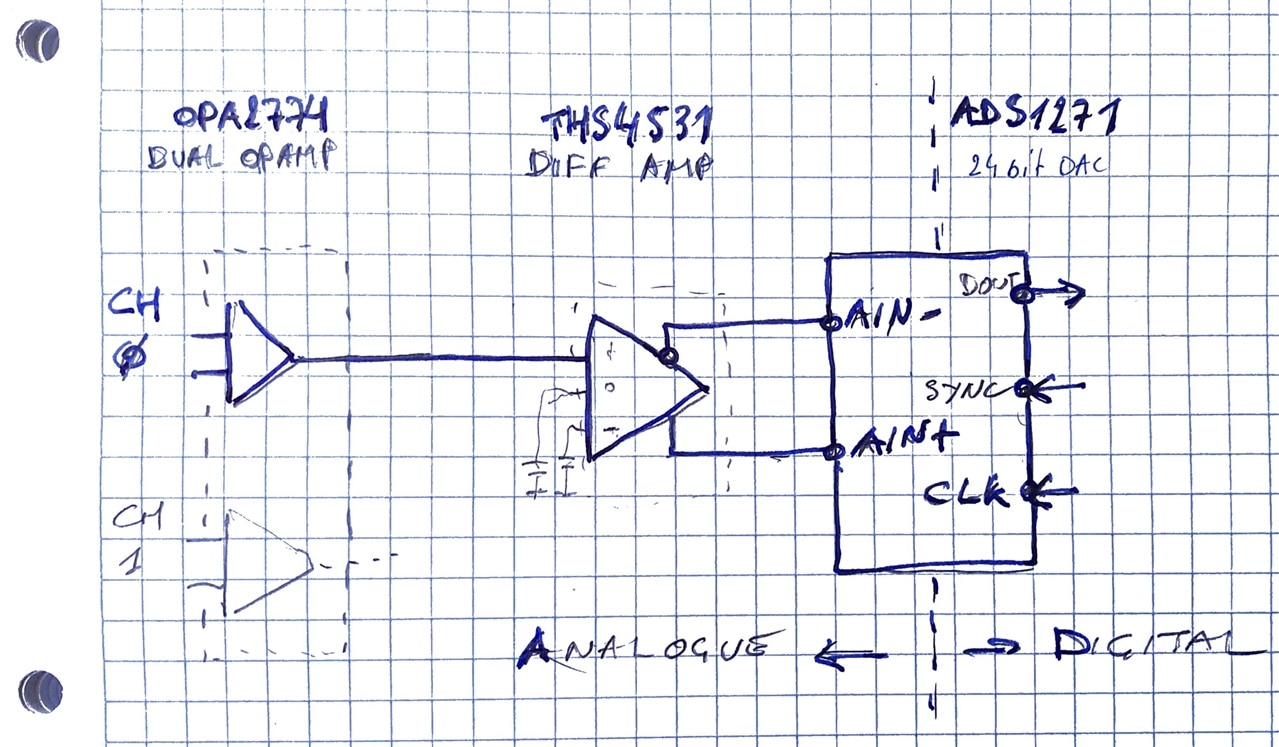 OPA2774
DUAL OPAMP
THS4531
DIFF AMP
ADS1271
24 bit DAC
CH
Ø
CH
1
+
o
-
AIN-
AIN+
DOUT
SYNC
CLK
ANALOGUE
DIGITAL